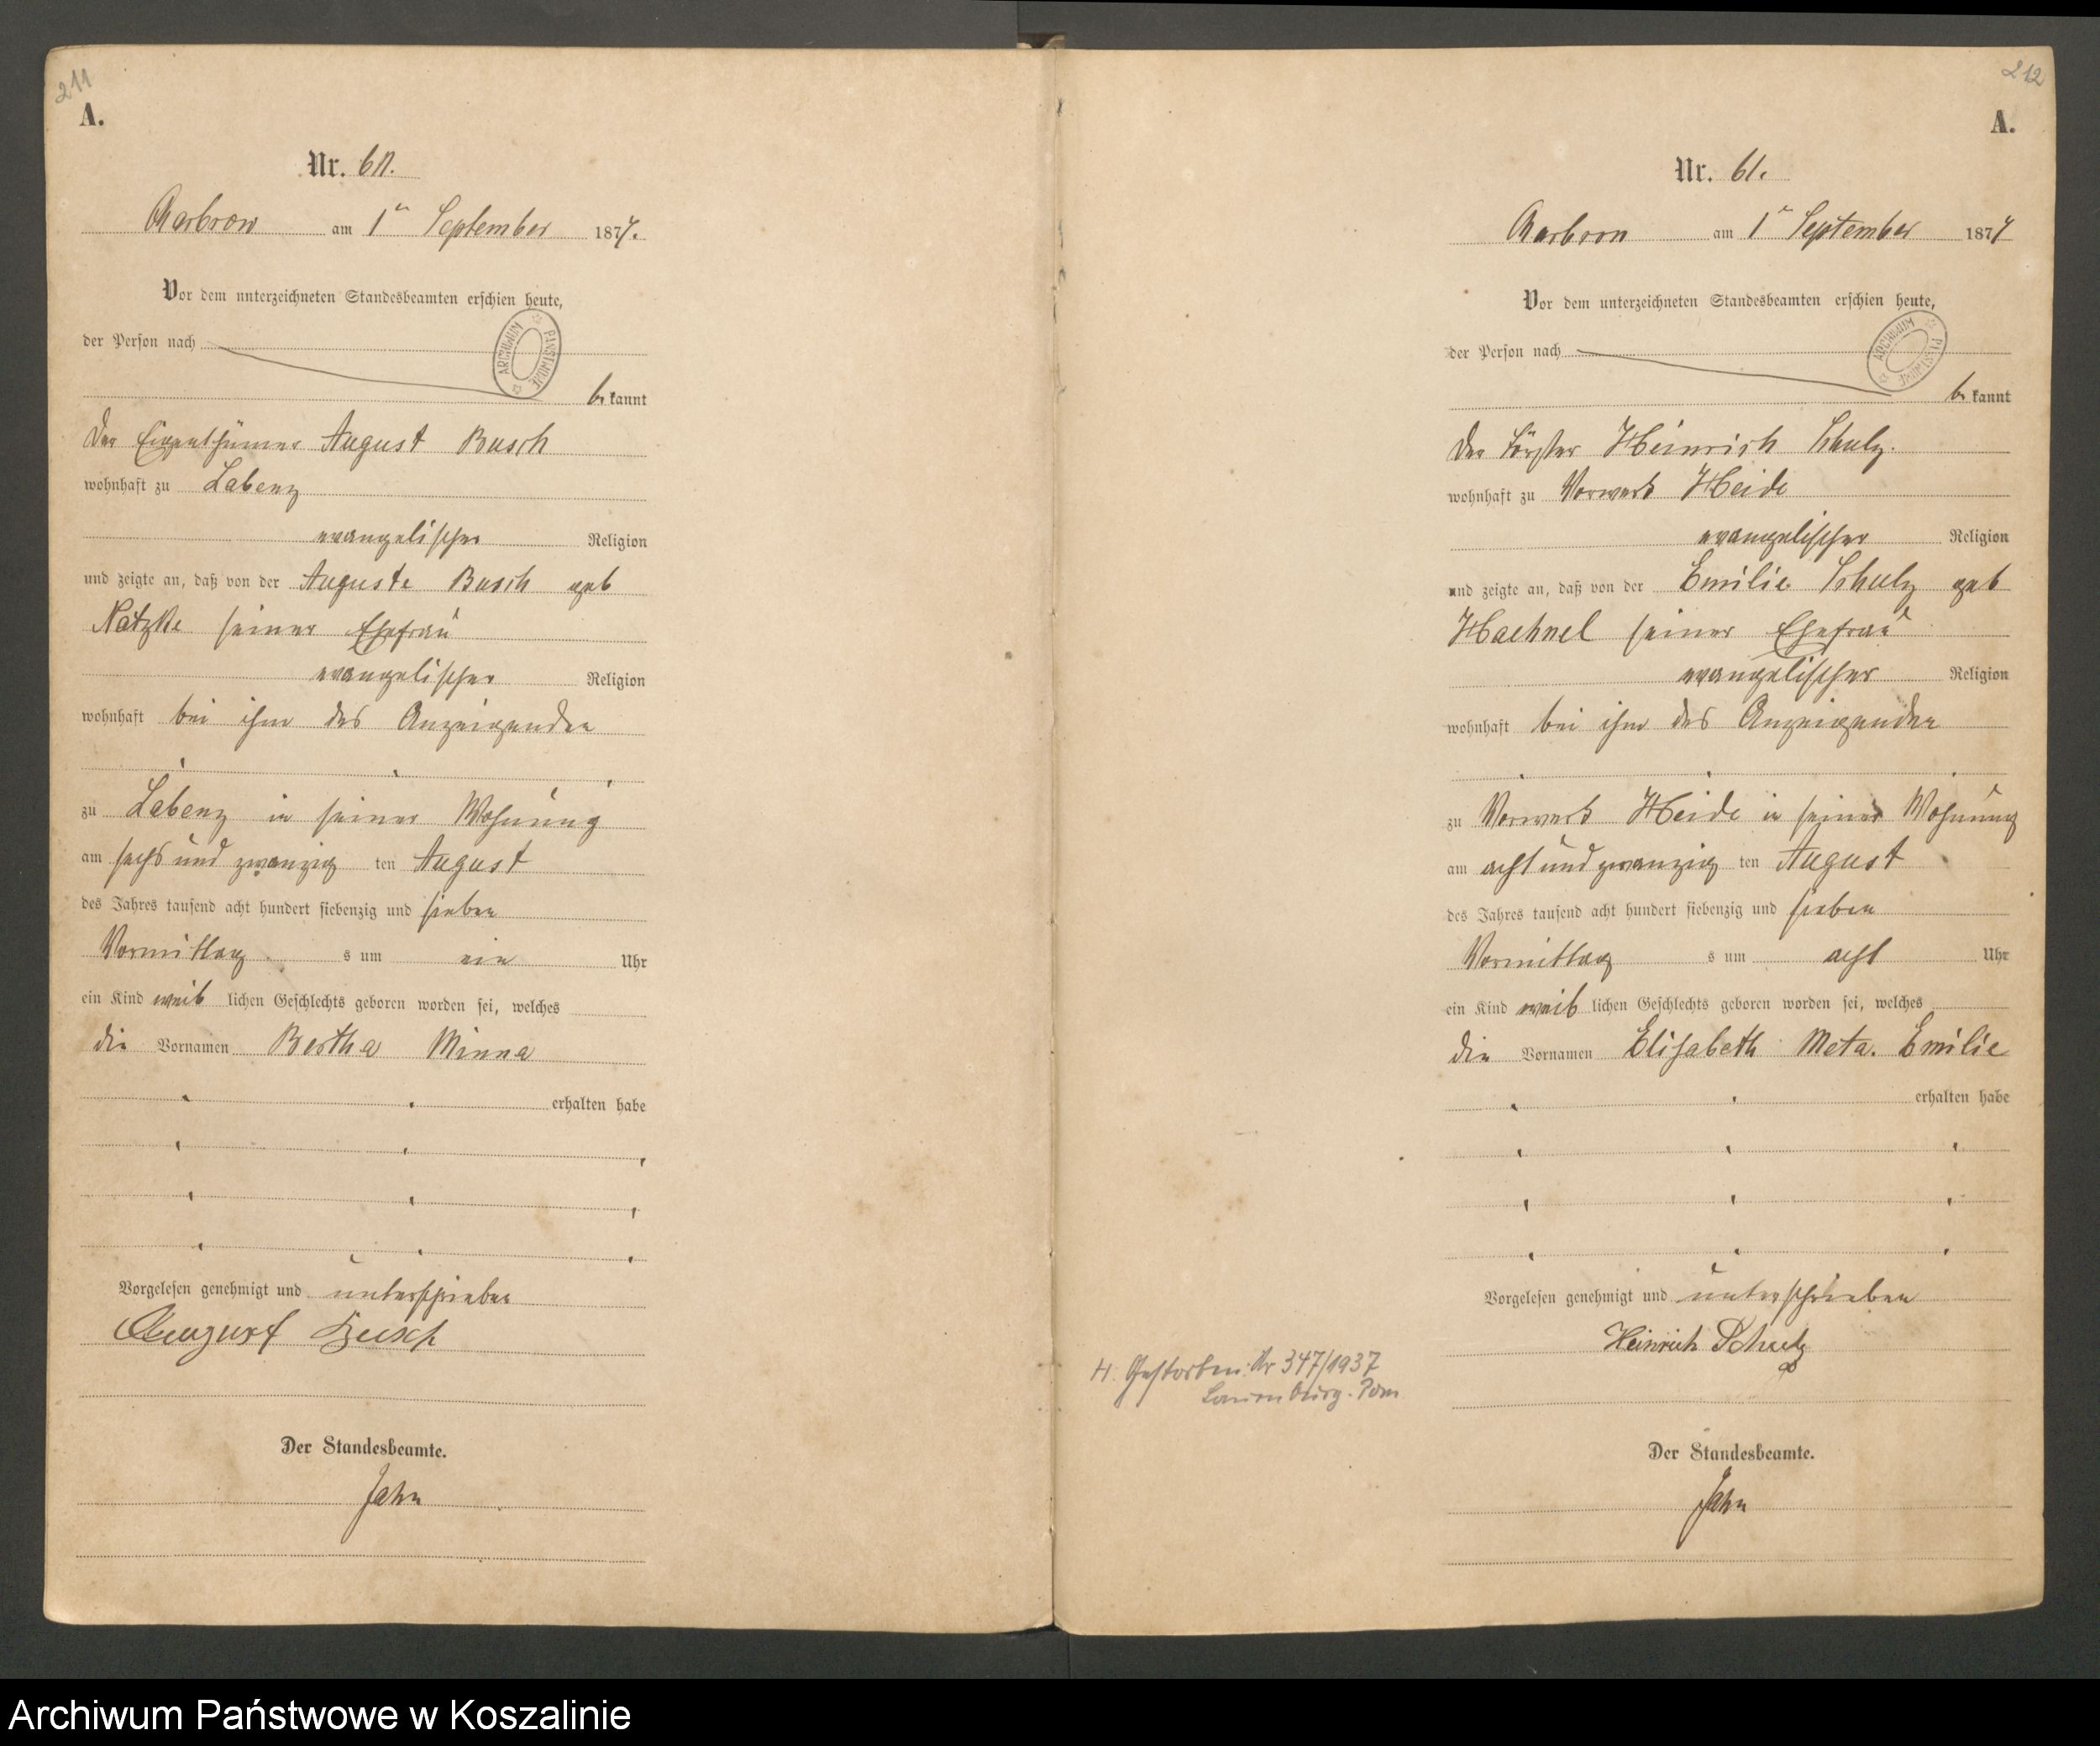 211
A.
Nr. 60.
Charbrow am 1ten September 1877.
Vor dem unterzeichneten Standesbeamten erschien heute,
der Person nach
ARCHIWUM PAŃSTWOWE
bekannt
der Eigenthümer August Busch
wohnhaft zu Labenz
evangelischer Religion
und zeigte an, daß von der Auguste Busch geb
Natzke seiner Ehefrau
evangelischer Religion
wohnhaft bei ihm des Anzeigenden
zu Labenz in seiner Wohnung
am sechs und zwanzig ten August
des Jahres tausend acht hundert siebenzig und sieben
Vormittag s um ein Uhr
ein Kind weib lichen Geschlechts geboren worden sei, welches
die Vornamen Bertha Minna
erhalten habe
Vorgelesen genehmigt und unterschrieben
August Busch
Der Standesbeamte.
Jahn
212
A.
Nr. 61.
Charbrow am 1ten September 1877
Vor dem unterzeichneten Standesbeamten erschien heute,
der Person nach
ARCHIWUM PAŃSTWOWE
bekannt
der Förster Heinrich Schulz.
wohnhaft zu Vorwerk Heide
evangelischer Religion
und zeigte an, daß von der Emilie Schulz geb
Haehnel seiner Ehefrau
evangelischer Religion
wohnhaft bei ihm des Anzeigenden
zu Vorwerk Heide in seiner Wohnung
am acht und zwanzig ten August
des Jahres tausend acht hundert siebenzig und sieben
Vormittag s um acht Uhr
ein Kind weib lichen Geschlechts geboren worden sei, welches
die Vornamen Elisabeth Meta. Emilie
erhalten habe
Vorgelesen genehmigt und unterschrieben
Heinrich Schulz
H. Gestorben: Nr 347/1937
Lauenburg. Pom
Der Standesbeamte.
Jahn
Archiwum Państwowe w Koszalinie